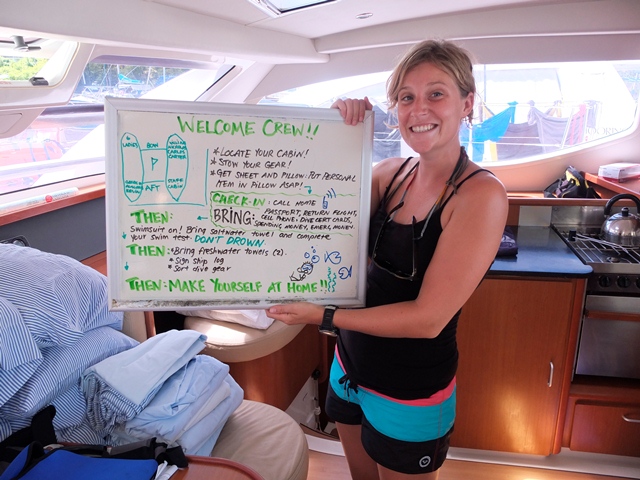 WELCOME CREW!!
LADIES
BOW
AFT
CABIN
* LOCATE YOUR CABIN!
* STOW YOUR GEAR!
* GET SHEET AND PILLOW: PUT PERSONAL
ITEM IN PILLOW ASAP!
CHECK-IN: CALL HOME
BRING: PASSPORT, RETURN FLIGHT,
CELL PHONE, DIVE CERT CARDS,
SPENDING MONEY, EMERG. MONEY
THEN:
Swimsuit on! Bring saltwater towel and complete
your swim test. DON'T DROWN.
THEN: • Bring freshwater towels (2).
* Sign ship log
* Sort dive gear
THEN: MAKE YOURSELF AT HOME!!